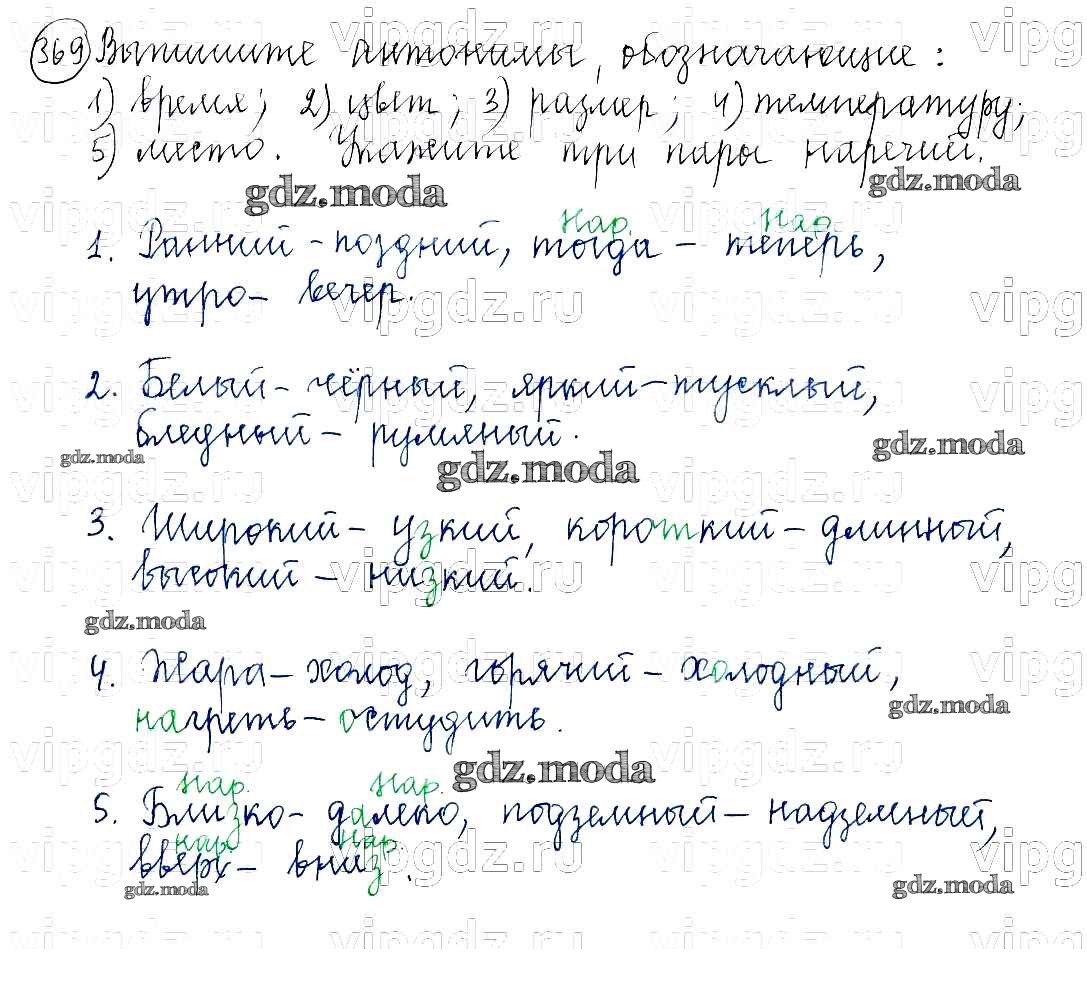 369 Выпишите антонимы, обозначающие:
1) время; 2) цвет; 3) размер; 4) температуру;
5) место. Укажите три пары наречий.
gdz.moda gdz.moda
Нар. Нар.
1. Ранний - поздний, тогда - теперь,
утро - вечер.
2. Белый - чёрный, яркий - тусклый,
бледный - румяный.
gdz.moda gdz.moda gdz.moda
3. Широкий - узкий, короткий - длинный,
высокий - низкий.
gdz.moda
4. Жара - холод, горячий - холодный,
нагреть - остудить.
gdz.moda gdz.moda
Нар. Нар.
5. Близко - далеко, подземный - надземный,
нар. нар.
вверх - вниз.
gdz.moda gdz.moda
vipgdz.ru